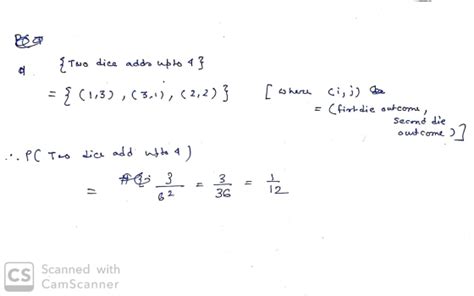 {Two dice adds upto 4}
= { (1,3) , (3,1) , (2,2) } [ where (i,j)
= (first die outcome,
second die
outcome ) ]
∴ P( Two dice add upto 4 )
= 3/6² = 3/36 = 1/12
CS Scanned with
CamScanner